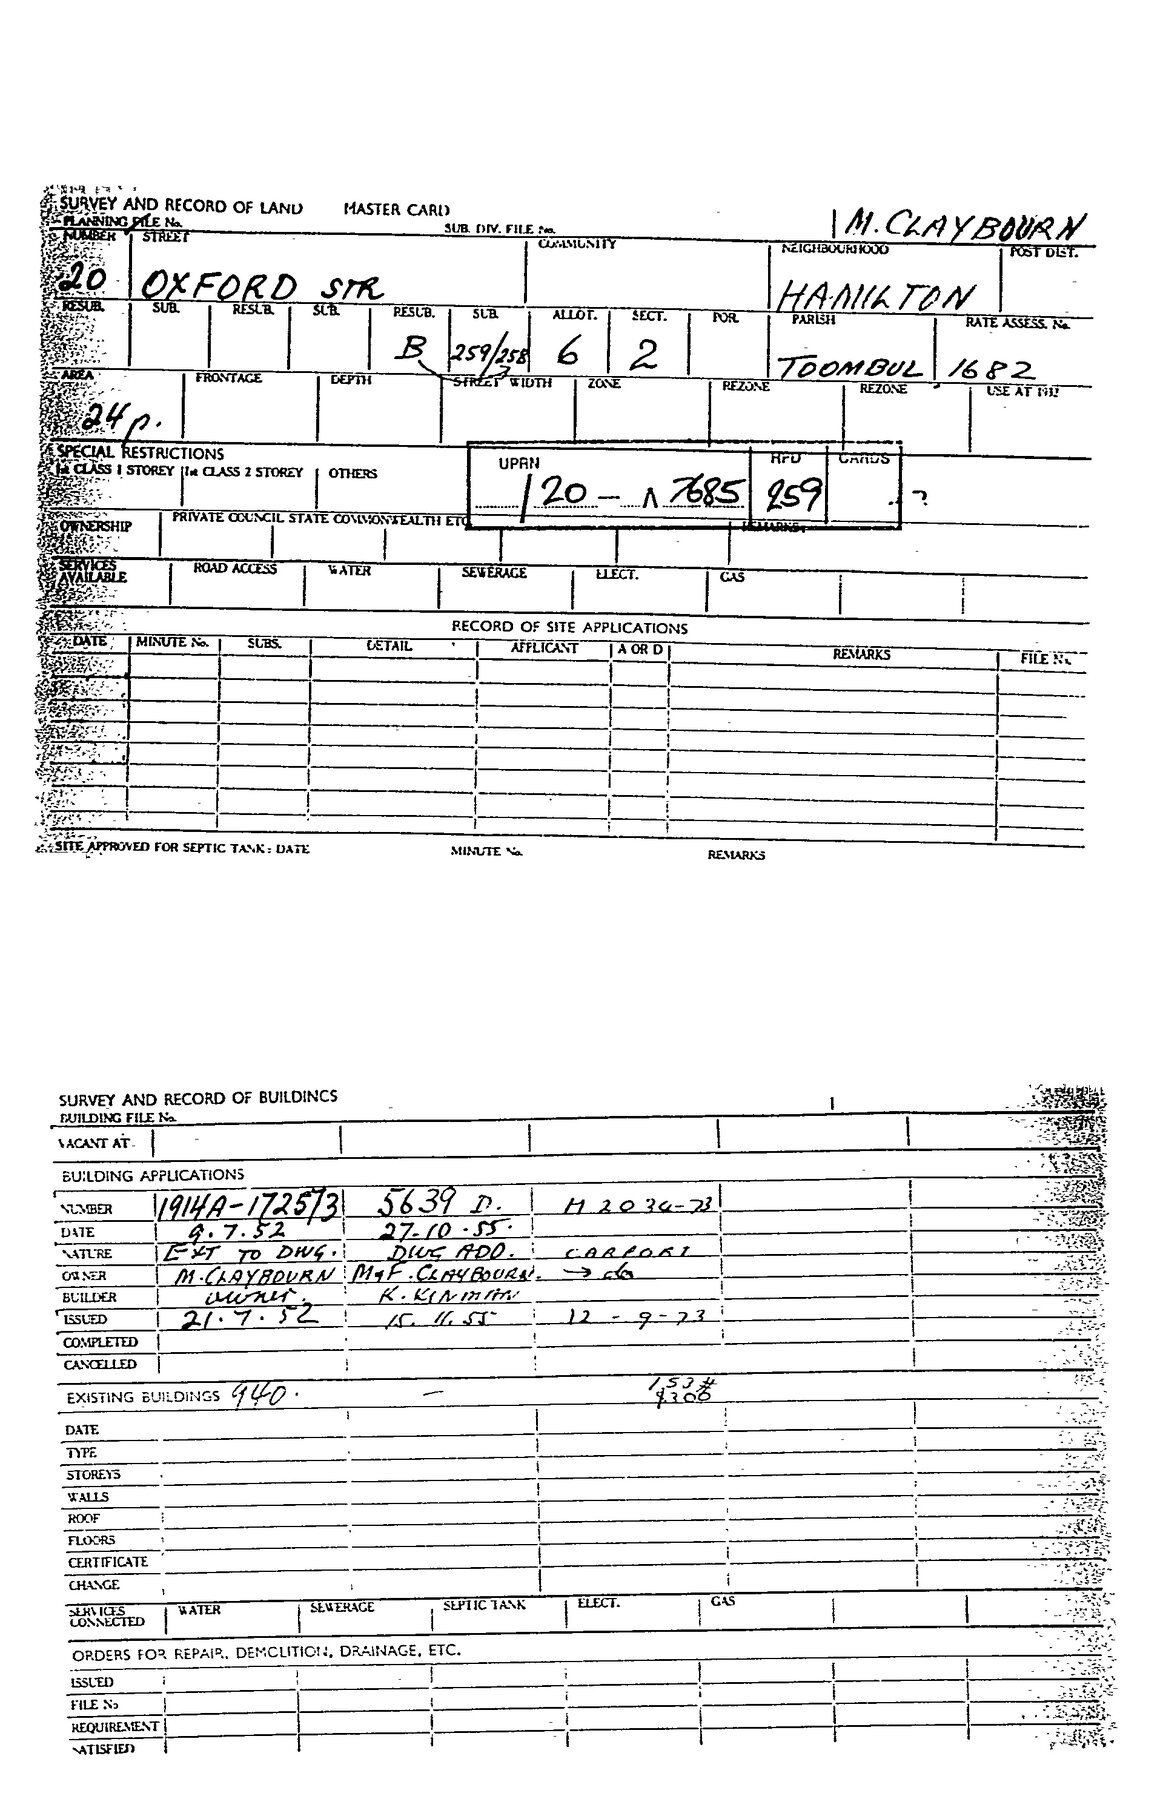 SURVEY AND RECORD OF LAND MASTER CARD
PLANNING FILE No. SUB. DIV. FILE No. M. CLAYBOURN
NUMBER STREET COMMUNITY NEIGHBOURHOOD POST DIST.
20 OXFORD STR HAMILTON
RESUB. SUB. RESUB. SUB. RESUB. SUB. ALLOT. SECT. POR. PARISH RATE ASSESS. No.
B 259/258 6 2 TOOMBUL 1682
AREA FRONTAGE DEPTH STREET WIDTH ZONE REZONE REZONE USE AT
24 p.
SPECIAL RESTRICTIONS
1st CLASS 1 STOREY 1st CLASS 2 STOREY OTHERS
UPRN RPD CARDS
/20 - 7685 259 ?
OWNERSHIP PRIVATE COUNCIL STATE COMMONWEALTH ETC REMARKS
SERVICES AVAILABLE ROAD ACCESS WATER SEWERAGE ELECT. GAS
RECORD OF SITE APPLICATIONS
DATE MINUTE No. SUBS. DETAIL APPLICANT A OR D REMARKS FILE No.
SITE APPROVED FOR SEPTIC TANK: DATE MINUTE No. REMARKS
SURVEY AND RECORD OF BUILDINGS
BUILDING FILE No.
VACANT AT
BUILDING APPLICATIONS
NUMBER 1914A-1725/3 5639 D. H 2036-73
DATE 9.7.52 27-10.55.
NATURE EXT TO DWG. DWG ADD. CARPORT
OWNER M. CLAYBOURN M & F. CLAYBOURN. → do
BUILDER owner. K. KINMAN
ISSUED 21.7.52 15.11.55 12-9-73
COMPLETED
CANCELLED
EXISTING BUILDINGS 940. — 153#
$300
DATE
TYPE
STOREYS
WALLS
ROOF
FLOORS
CERTIFICATE
CHANGE
SERVICES CONNECTED WATER SEWERAGE SEPTIC TANK ELECT. GAS
ORDERS FOR REPAIR, DEMOLITION, DRAINAGE, ETC.
ISSUED
FILE No
REQUIREMENT
SATISFIED